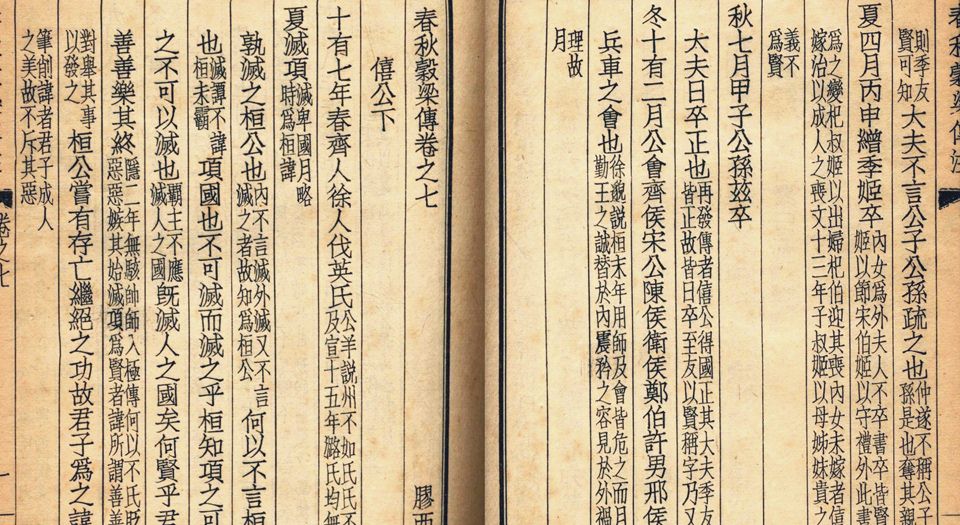 春秋穀梁傳注
則季友
賢可知
大夫不言公子公孫疏之也
仲遂不稱公子
孫是也奪其親
夏四月丙申繒季姬卒
內女為外夫人不卒書卒皆賢
姬以節宋伯姬以守禮外此書
為之變杞叔姬以出婦杞伯迎其喪內女未嫁者
嫁治以成人之喪文十三年子叔姬以母姊妹貴之
義不
為賢
秋七月甲子公孫茲卒
大夫日卒正也
再發傳者僖公得國正其大夫季友
皆正故皆日卒至友以賢稱字乃又
冬十有二月公會齊侯宋公陳侯衛侯鄭伯許男邢侯
兵車之會也
徐邈說桓末年用師及會皆危之而月
勤王之誠替於內震矜之容見於外禍
理故
月
春秋穀梁傳卷之七 膠西
僖公下
十有七年春齊人徐人伐英氏
公羊說州不如氏氏不
及宣十五年潞氏均無
夏滅項
滅卑國月略
時為桓諱
孰滅之桓公也
內不言滅外滅又不言
滅之者故知為桓公
何以不言桓
也
滅譚不諱
桓未霸
項國也不可滅而滅之乎桓知項之可
之不可以滅也
霸主不應
滅人之國
既滅人之國矣何賢乎君
善善樂其終
隱二年無駭帥師入極傳何以不氏貶
惡惡嫉其始滅項為賢者諱所謂善善
對舉其事
以發之
桓公嘗有存亡繼絕之功故君子為之諱
筆削諱者君子成人
之美故不斥其惡
卷之七